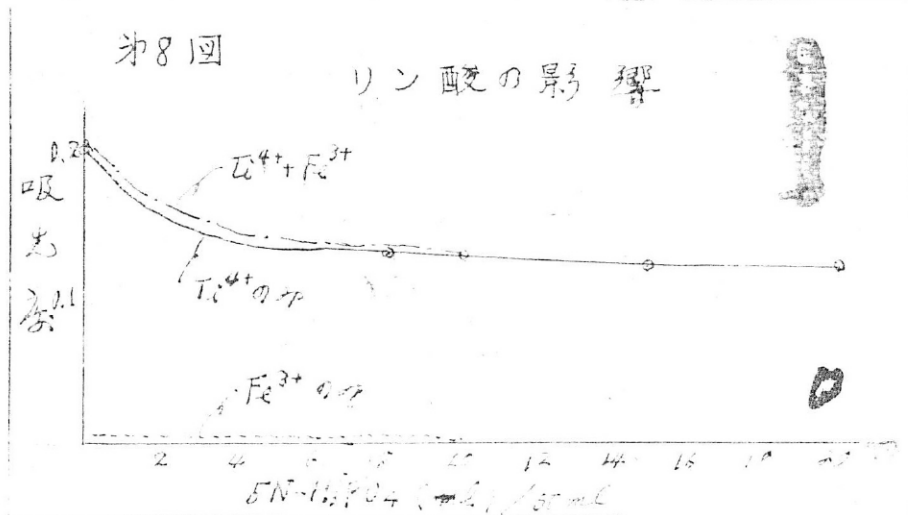 第8図
リン酸の影響
0.2
吸光度
0.1
Ti⁴⁺+Fe³⁺
Ti⁴⁺のみ
Fe³⁺のみ
2 4 6 8 10 12 14 16 18 20
5N-H₃PO₄ (ml)/50ml